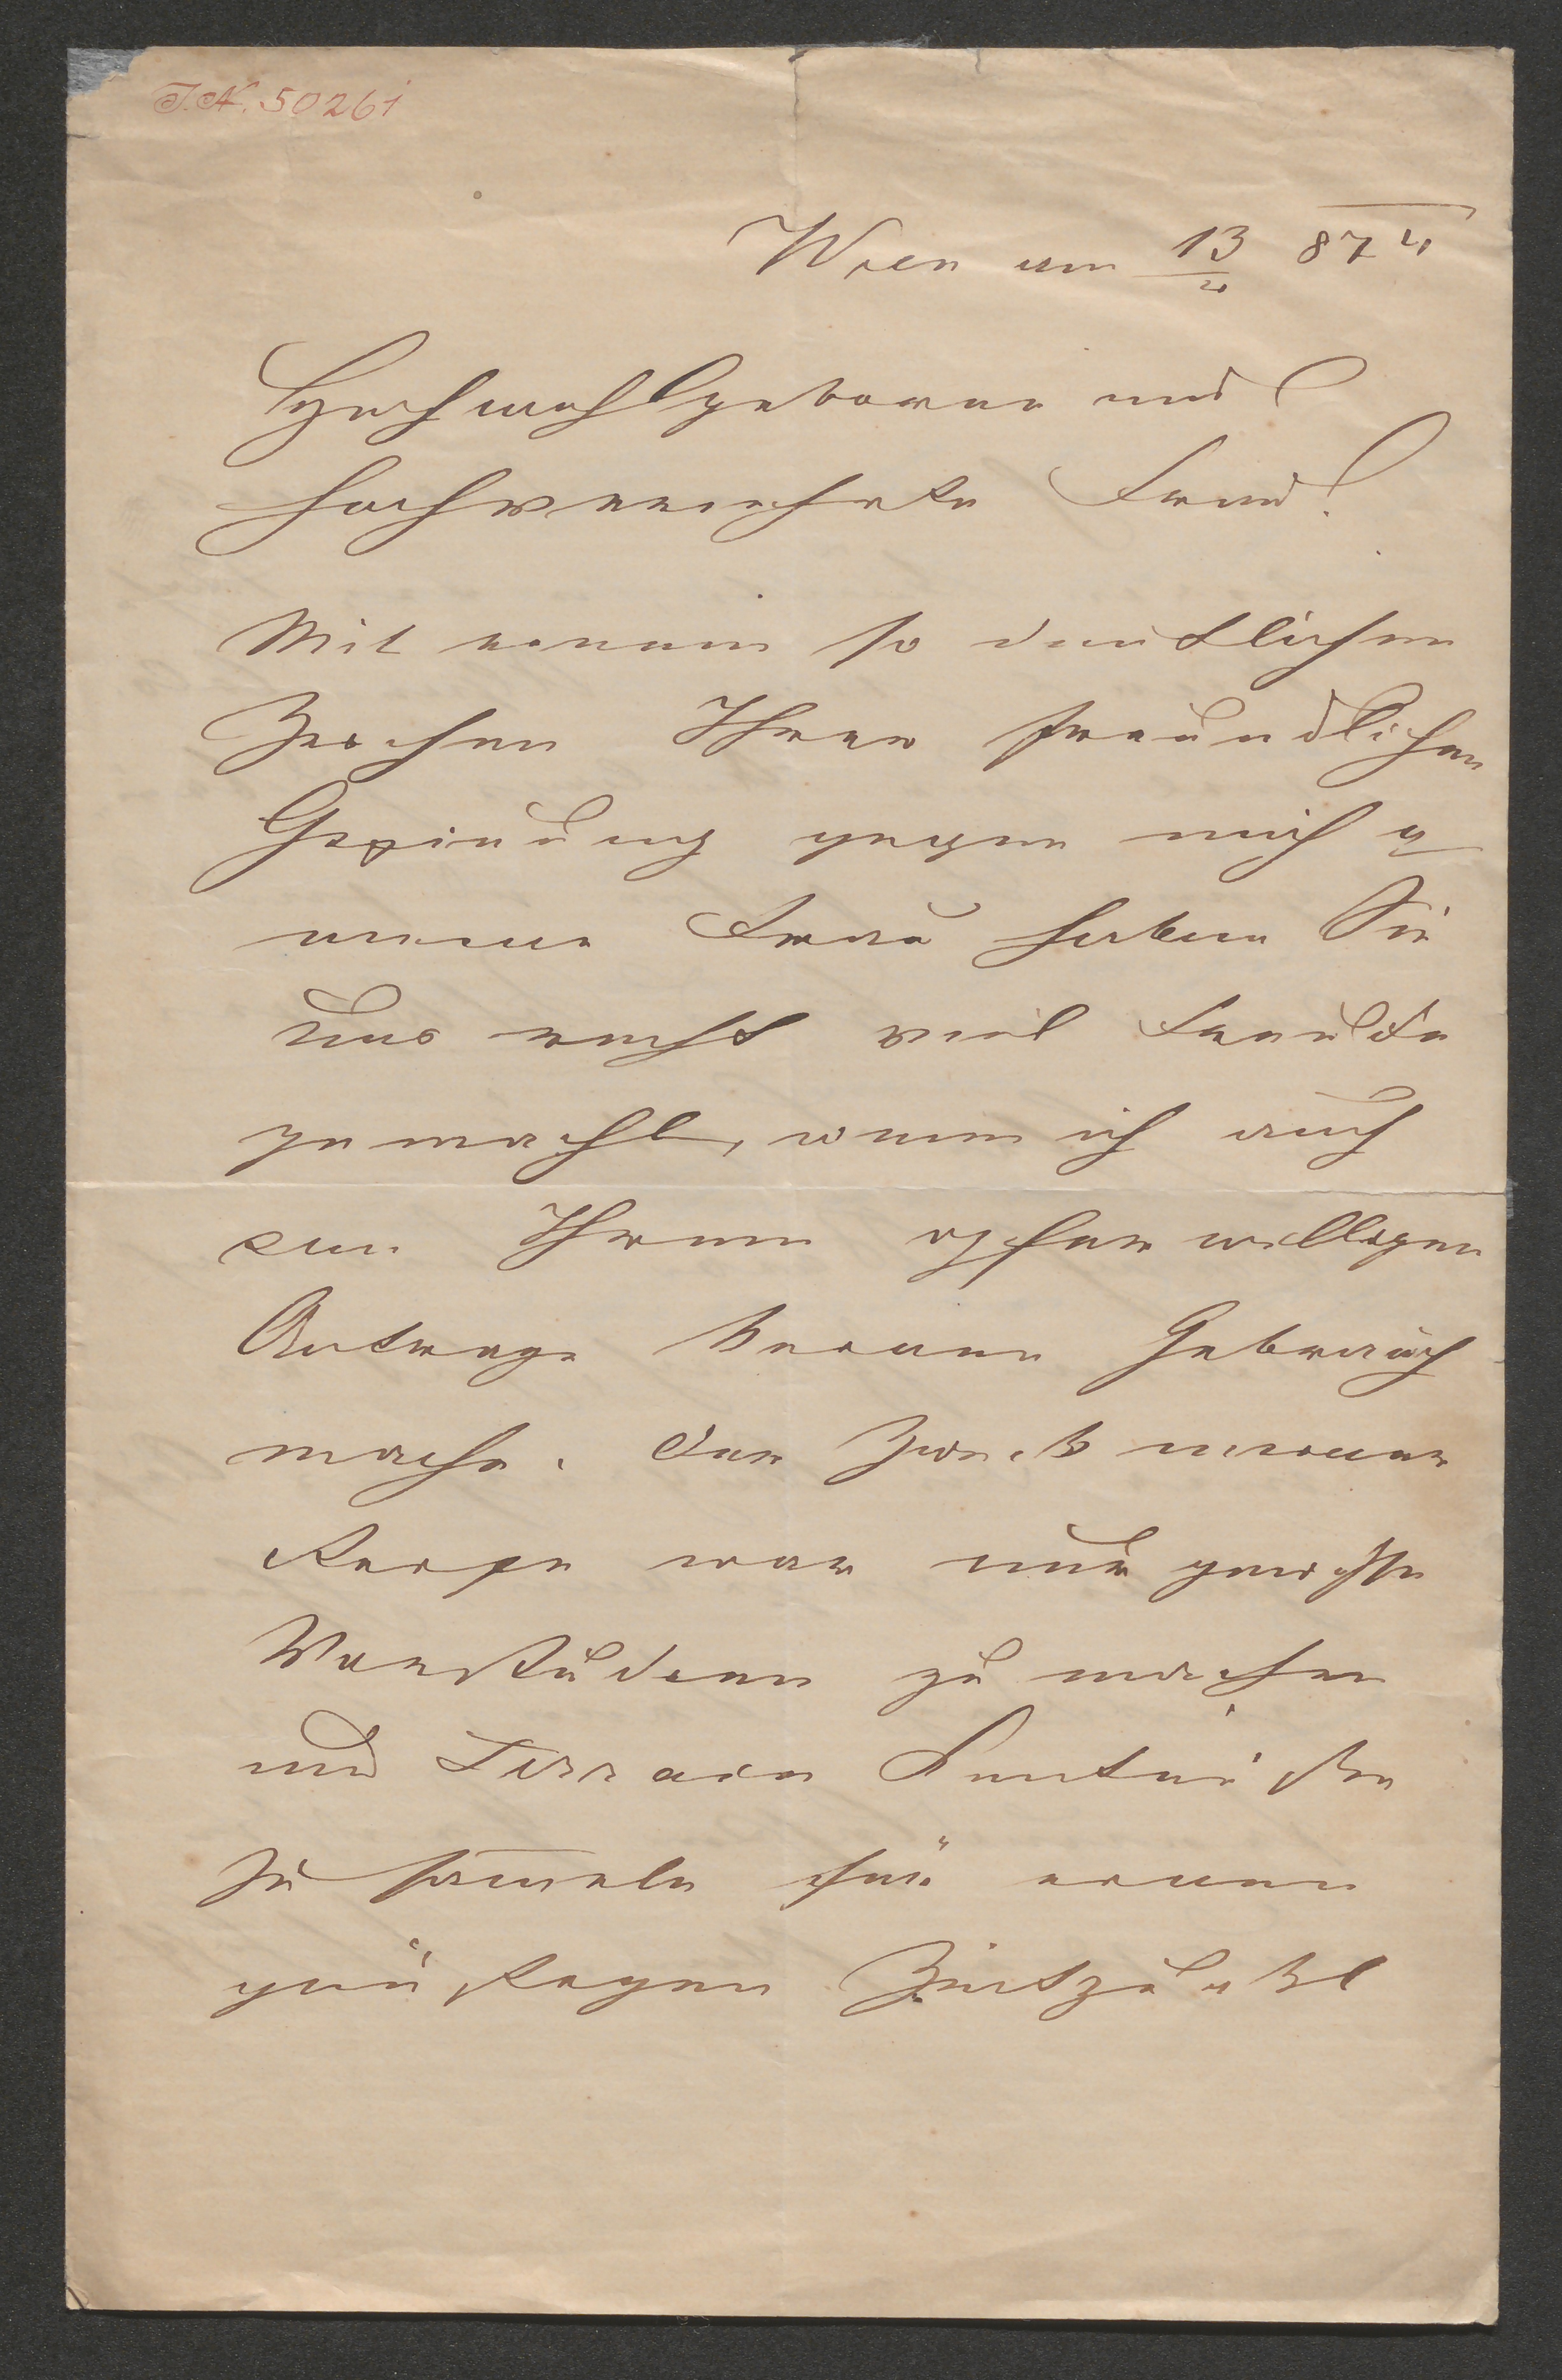 J.N. 50261
Wien am 13 874
Hochwohlgeborne und
hochverehrte Freund!
Mit einem so deutlichen
Zeichen Ihrer freundlichen
Gesinnung gegen mich u
meine Frau haben Sie
uns recht viel Freude
gemacht, wenn ich auch
von Ihrem opferwilligen
Antrage keinen Gebrauch
mache. Der Zweck meiner
Reise war nur gewisse
Vorstudien zu machen
und Terrain Kentniße
zu sammeln für einen
günstigen Zeitpunkt